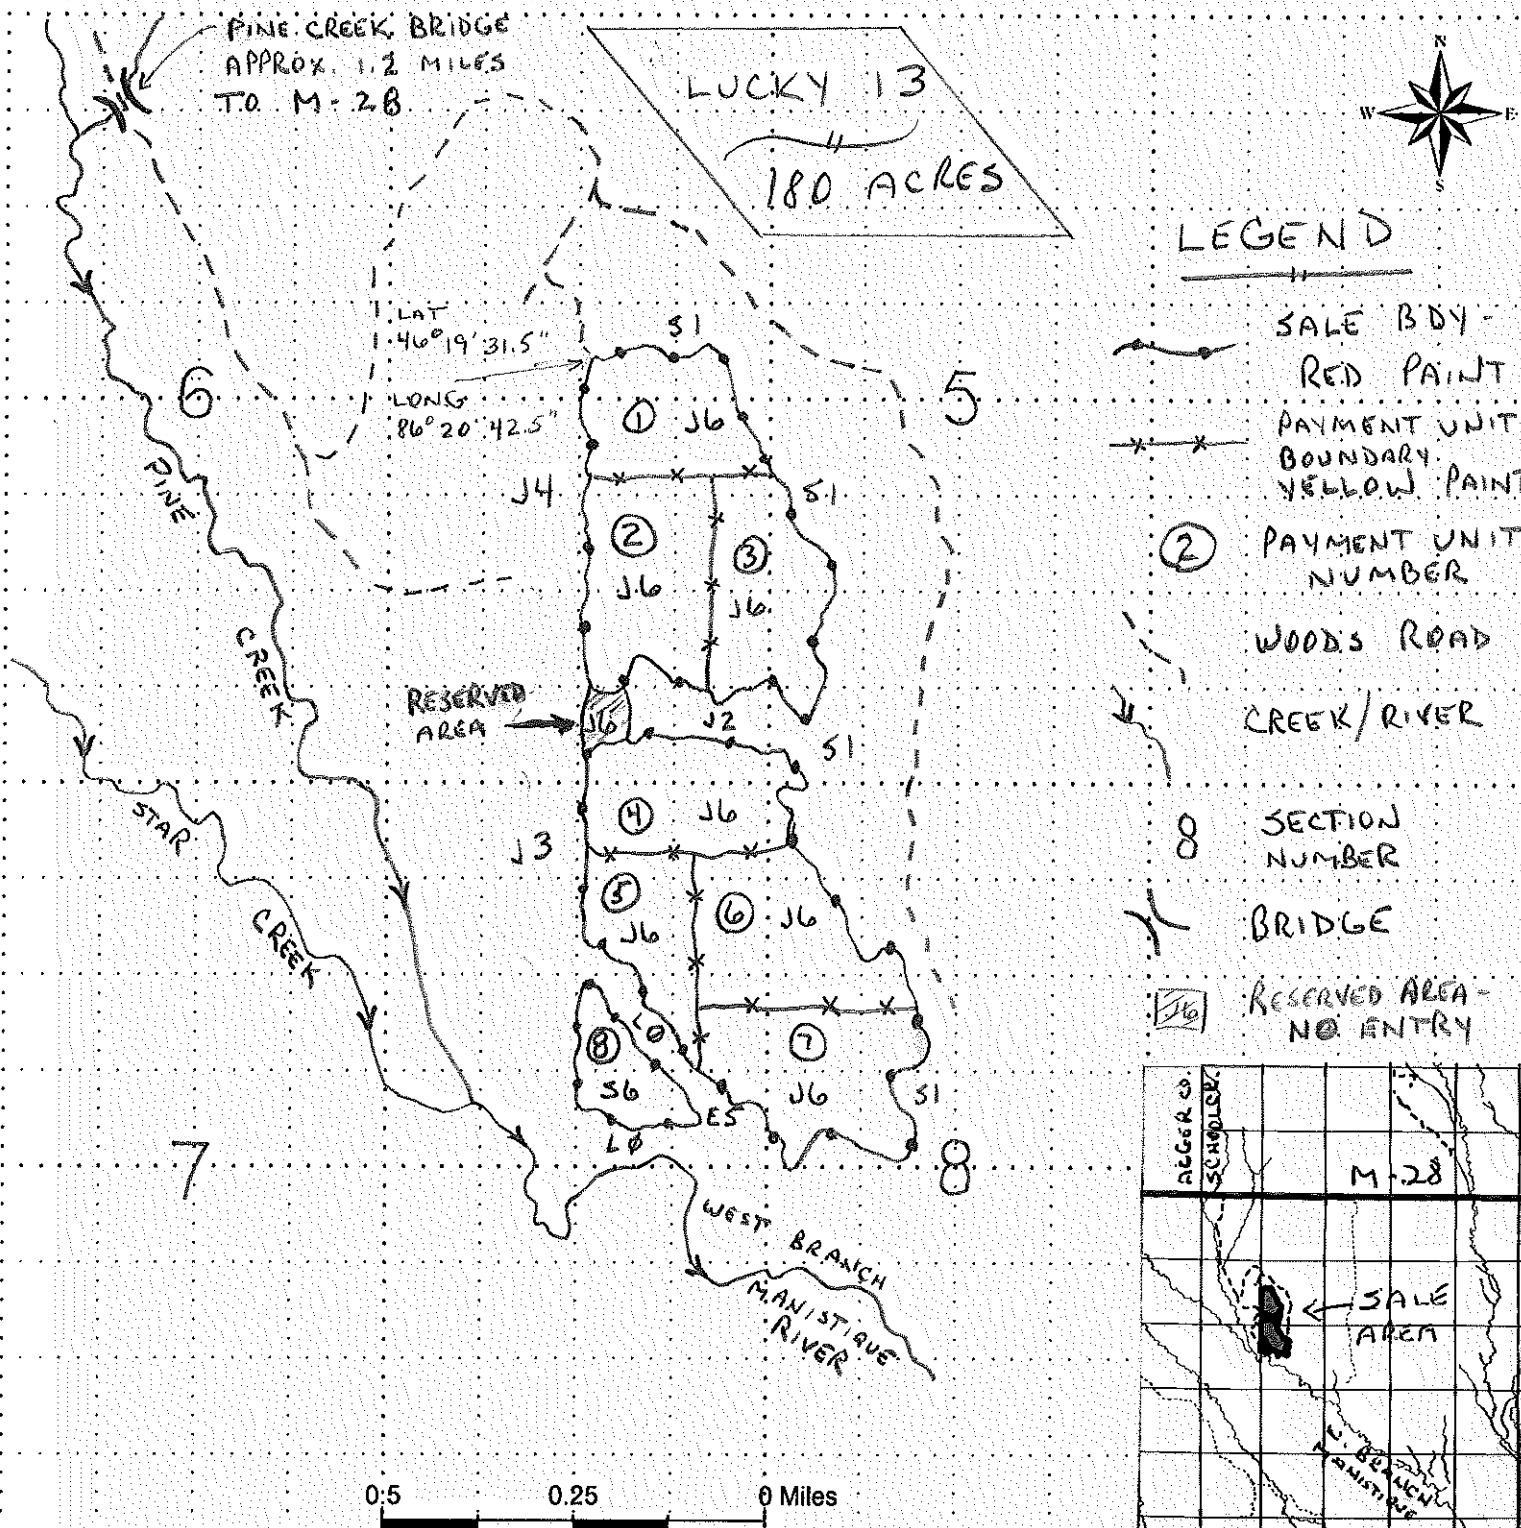 PINE CREEK BRIDGE
APPROX. 1.2 MILES
TO M-28
LUCKY 13
180 ACRES
N
W
E
S
LEGEND
SALE BDY-
RED PAINT
PAYMENT UNIT
BOUNDARY
YELLOW PAINT
2
PAYMENT UNIT
NUMBER
WOODS ROAD
CREEK/RIVER
8
SECTION
NUMBER
BRIDGE
J6
RESERVED AREA-
NO ENTRY
LAT
46° 19' 31.5"
LONG
86° 20' 42.5"
S1
6
5
1
J6
J4
S1
2
J6
3
J6
PINE
CREEK
RESERVED
AREA
J6
J2
S1
4
J6
J3
STAR
CREEK
5
J6
6
J6
LØ
8
S6
7
J6
S1
E5
LØ
7
8
WEST BRANCH
MANISTIQUE
RIVER
ALGER CO.
SCHOOLCR.
M-28
SALE
AREA
W. BRANCH
MANISTIQUE
0.5
0.25
0 Miles